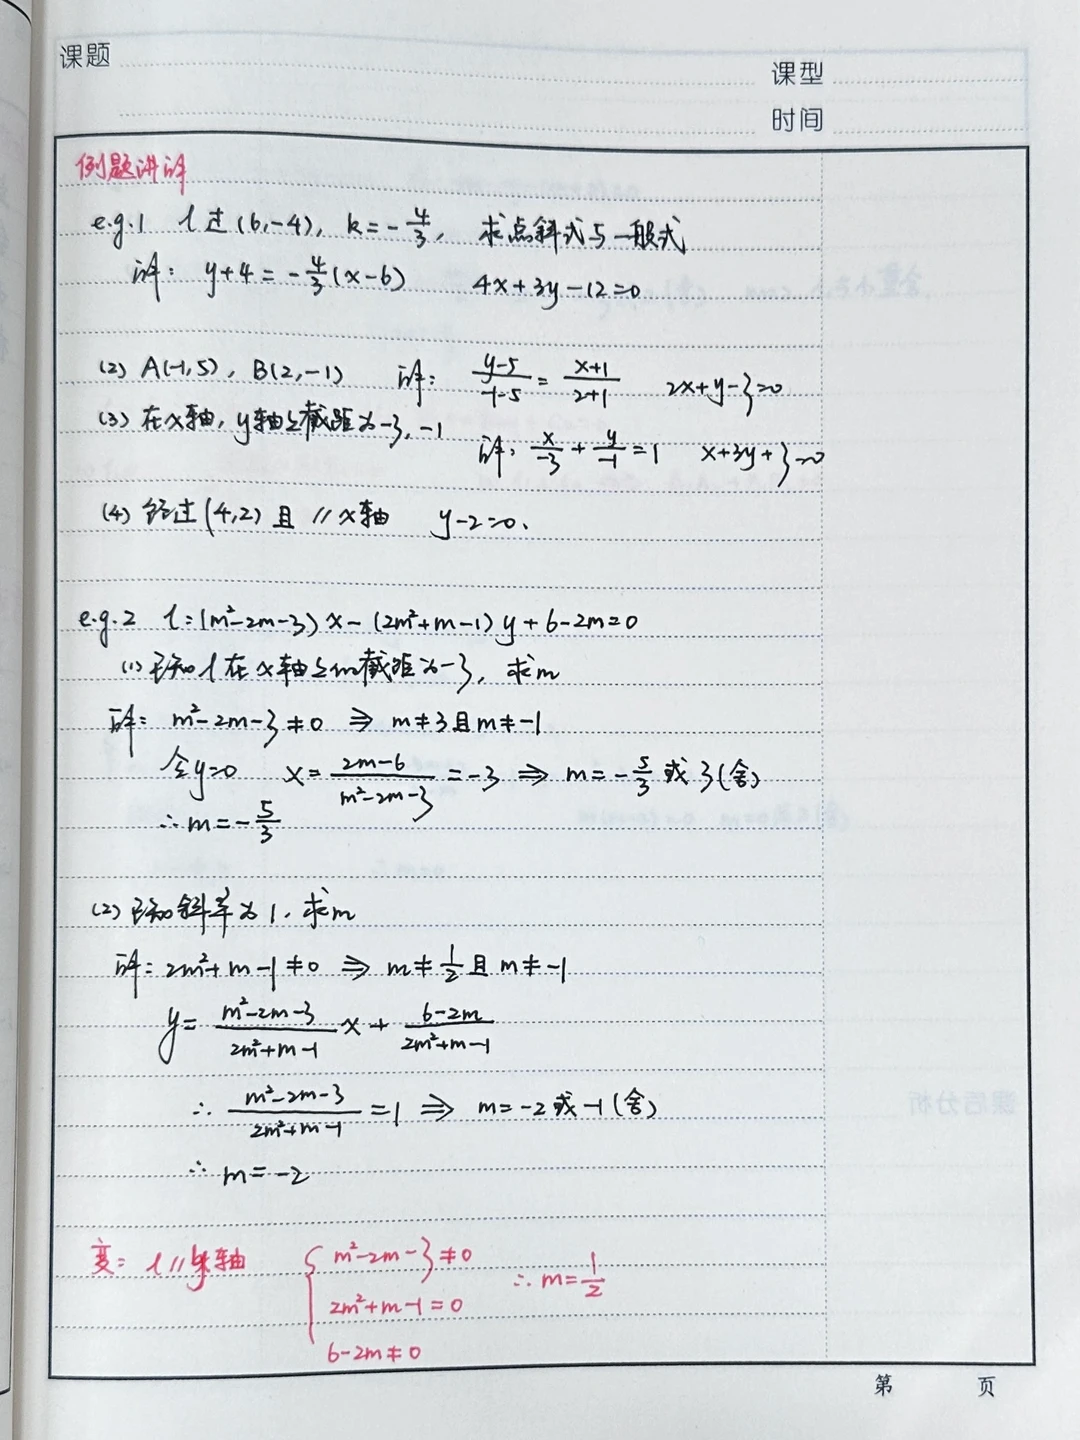 课题
课型
时间
例题讲解
e.g.1 l过(6,-4), k=-4/3, 求点斜式与一般式
解: y+4=-4/3(x-6) 4x+3y-12=0
(2) A(-1,5), B(2,-1) 解: (y-5)/(-1-5)=(x+1)/(2+1) 2x+y-3=0
(3) 在x轴, y轴上截距为-3, -1
解: x/-3+y/-1=1 x+3y+3=0
(4) 经过(4,2)且//x轴 y-2=0.
e.g.2 l:(m²-2m-3)x-(2m²+m-1)y+6-2m=0
(1) 已知l在x轴上的截距为-3, 求m
解: m²-2m-3≠0 ⇒ m≠3且m≠-1
令y=0 x=(2m-6)/(m²-2m-3)=-3 ⇒ m=-5/3或3(舍)
∴m=-5/3
(2) 已知斜率为1, 求m
解: 2m²+m-1≠0 ⇒ m≠1/2且m≠-1
y=(m²-2m-3)/(2m²+m-1)x+(6-2m)/(2m²+m-1)
∴(m²-2m-3)/(2m²+m-1)=1 ⇒ m=-2或-1(舍)
∴m=-2
变: l//y轴 { m²-2m-3≠0 ∴m=1/2
2m²+m-1=0
6-2m≠0
第 页